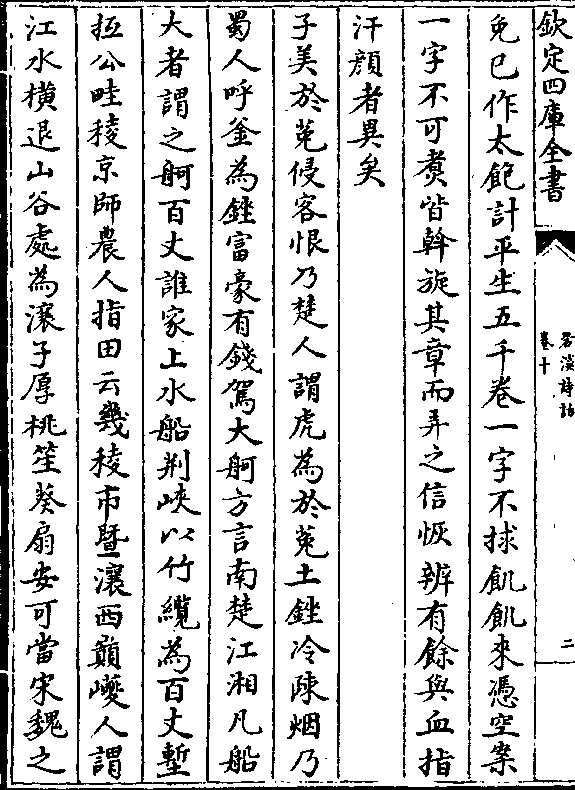 欽定四庫全書
䂬溪詩話
卷十
二
免已作太飽計平生五千卷一字不救飢飢來憑空案
一字不可煑皆斡旋其章而弄之信恢辨有餘與血指
汗顔者異矣
子美於菟侵客恨乃楚人謂虎為於菟土銼冷疎烟乃
蜀人呼釜為銼富豪有錢駕大舸方言南楚江湘凡船
大者謂之舸百丈誰家上水船荆峽以竹纜為百丈塹
抵公畦稜京師農人指田云幾稜市暨瀼西巔夔人謂
江水横退山谷處為瀼子厚桃笙葵扇安可當宋魏之